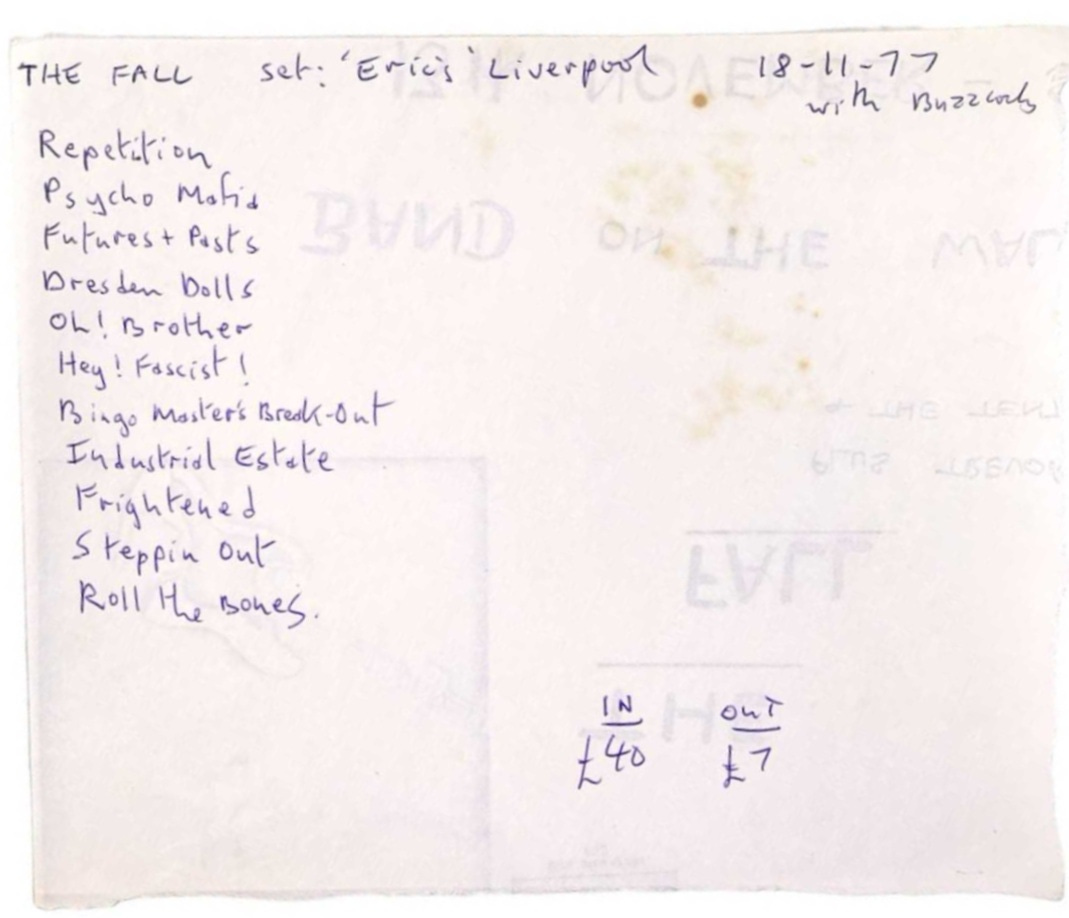 THE FALL set: 'Eric's' Liverpool 18-11-77
with Buzzcocks
Repetition
Psycho Mafia
Futures + Pasts
Dresden Dolls
Oh! Brother
Hey! Fascist!
Bingo Master's Break-Out
Industrial Estate
Frightened
Steppin Out
Roll the Bones.
IN OUT
£40 £7
NOVEMBER
BAND ON THE WAL
+ THE TENT
PLUS TREVOR
FALL
THE